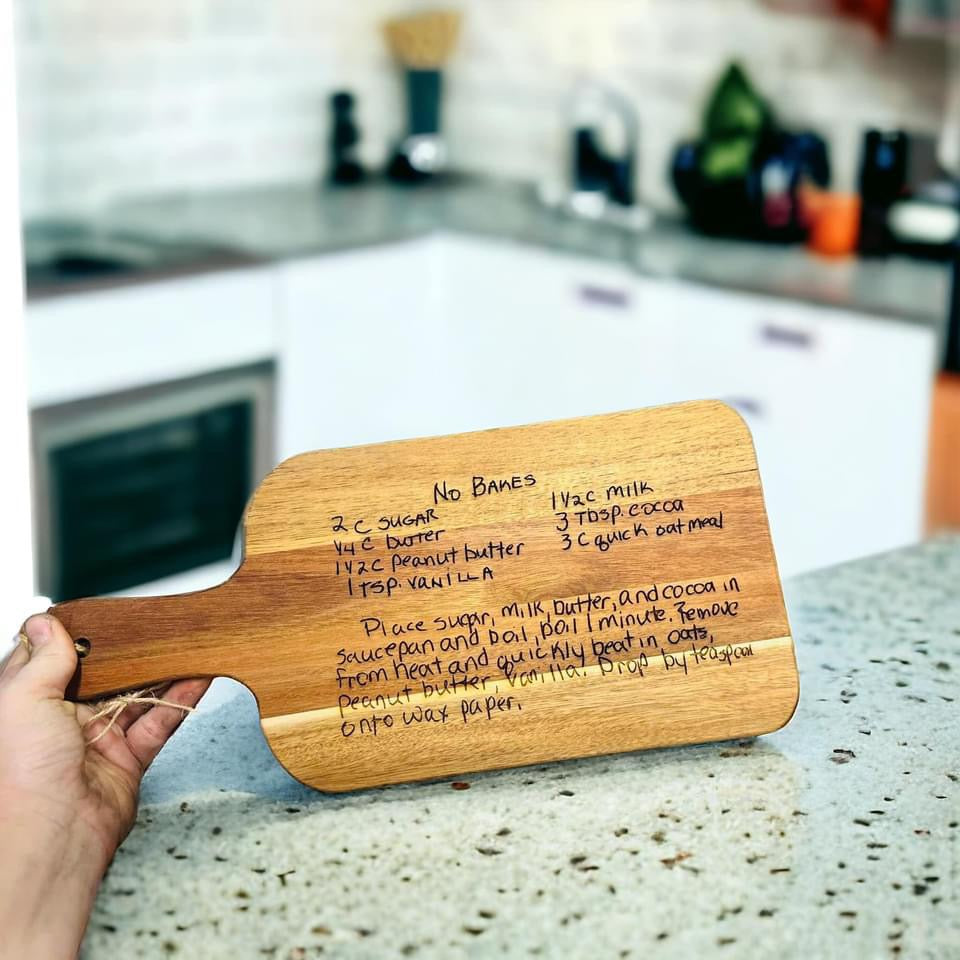 No BAKES
2 C SUGAR
1/4 C butter
1 1/2 C peanut butter
1 TSP. VANILLA
1 1/2 C milk
3 Tbsp. cocoa
3 C quick oatmeal
Place sugar, milk, butter, and cocoa in
saucepan and boil, boil 1 minute. Remove
from heat and quickly beat in oats,
peanut butter, vanilla. Drop by teaspoon
onto wax paper.